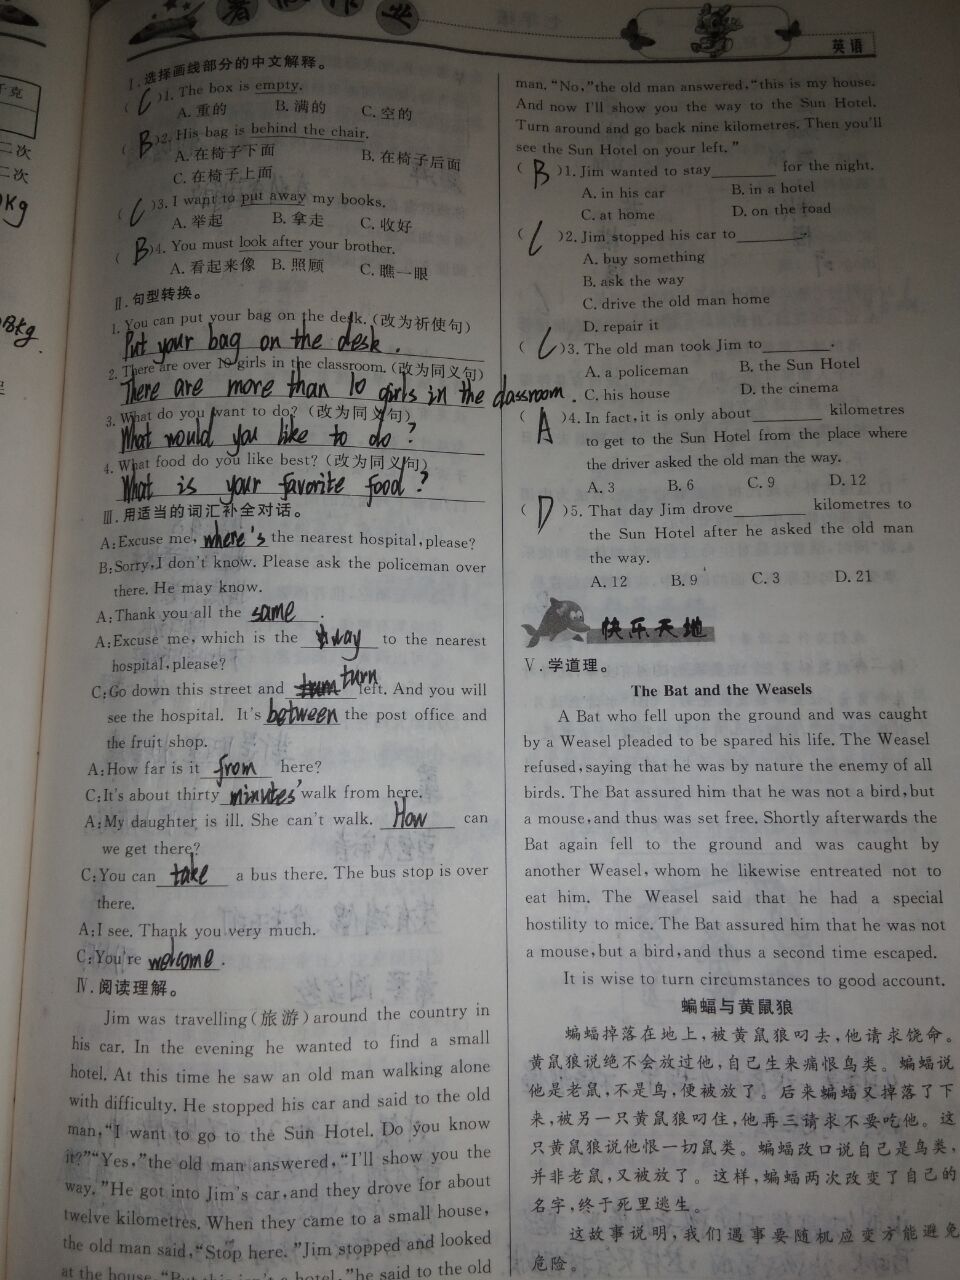 暑假作业
英语
千克
二次
二次
Ⅰ.选择画线部分的中文解释。
( C )1. The box is empty.
A. 重的 B. 满的 C. 空的
( B )2. His bag is behind the chair.
A. 在椅子下面 B. 在椅子后面
C. 在椅子上面
( C )3. I want to put away my books.
A. 举起 B. 拿走 C. 收好
( B )4. You must look after your brother.
A. 看起来像 B. 照顾 C. 瞧一眼
Ⅱ.句型转换。
1. You can put your bag on the desk. (改为祈使句)
Put your bag on the desk.
2. There are over 10 girls in the classroom. (改为同义句)
There are more than 10 girls in the classroom.
3. What do you want to do? (改为同义句)
What would you like to do?
4. What food do you like best? (改为同义句)
What is your favorite food?
Ⅲ.用适当的词汇补全对话。
A: Excuse me, where's the nearest hospital, please?
B: Sorry, I don't know. Please ask the policeman over
there. He may know.
A: Thank you all the same.
A: Excuse me, which is the way to the nearest
hospital, please?
C: Go down this street and turn left. And you will
see the hospital. It's between the post office and
the fruit shop.
A: How far is it from here?
C: It's about thirty minutes' walk from here.
A: My daughter is ill. She can't walk. How can
we get there?
C: You can take a bus there. The bus stop is over
there.
A: I see. Thank you very much.
C: You're welcome.
Ⅳ.阅读理解。
Jim was travelling(旅游)around the country in
his car. In the evening he wanted to find a small
hotel. At this time he saw an old man walking alone
with difficulty. He stopped his car and said to the old
man, "I want to go to the Sun Hotel. Do you know
it?" "Yes," the old man answered, "I'll show you the
way." He got into Jim's car, and they drove for about
twelve kilometres. When they came to a small house,
the old man said, "Stop here." Jim stopped and looked
at the house. "But this isn't a hotel," he said to the old
man. "No," the old man answered, "this is my house.
And now I'll show you the way to the Sun Hotel.
Turn around and go back nine kilometres. Then you'll
see the Sun Hotel on your left."
( B )1. Jim wanted to stay ______ for the night.
A. in his car B. in a hotel
C. at home D. on the road
( C )2. Jim stopped his car to ______.
A. buy something
B. ask the way
C. drive the old man home
D. repair it
( C )3. The old man took Jim to ______.
A. a policeman B. the Sun Hotel
C. his house D. the cinema
( A )4. In fact, it is only about ______ kilometres
to get to the Sun Hotel from the place where
the driver asked the old man the way.
A. 3 B. 6 C. 9 D. 12
( D )5. That day Jim drove ______ kilometres to
the Sun Hotel after he asked the old man
the way.
A. 12 B. 9 C. 3 D. 21
快乐天地
Ⅴ.学道理。
The Bat and the Weasels
A Bat who fell upon the ground and was caught
by a Weasel pleaded to be spared his life. The Weasel
refused, saying that he was by nature the enemy of all
birds. The Bat assured him that he was not a bird, but
a mouse, and thus was set free. Shortly afterwards the
Bat again fell to the ground and was caught by
another Weasel, whom he likewise entreated not to
eat him. The Weasel said that he had a special
hostility to mice. The Bat assured him that he was not
a mouse, but a bird, and thus a second time escaped.
It is wise to turn circumstances to good account.
蝙蝠与黄鼠狼
蝙蝠掉落在地上,被黄鼠狼叼去,他请求饶命。
黄鼠狼说绝不会放过他,自己生来痛恨鸟类。蝙蝠说
他是老鼠,不是鸟,便被放了。后来蝙蝠又掉落了下
来,被另一只黄鼠狼叼住,他再三请求不要吃他。这
只黄鼠狼说他恨一切鼠类。蝙蝠改口说自己是鸟类,
并非老鼠,又被放了。这样,蝙蝠两次改变了自己的
名字,终于死里逃生。
这故事说明,我们遇事要随机应变方能避免
危险。